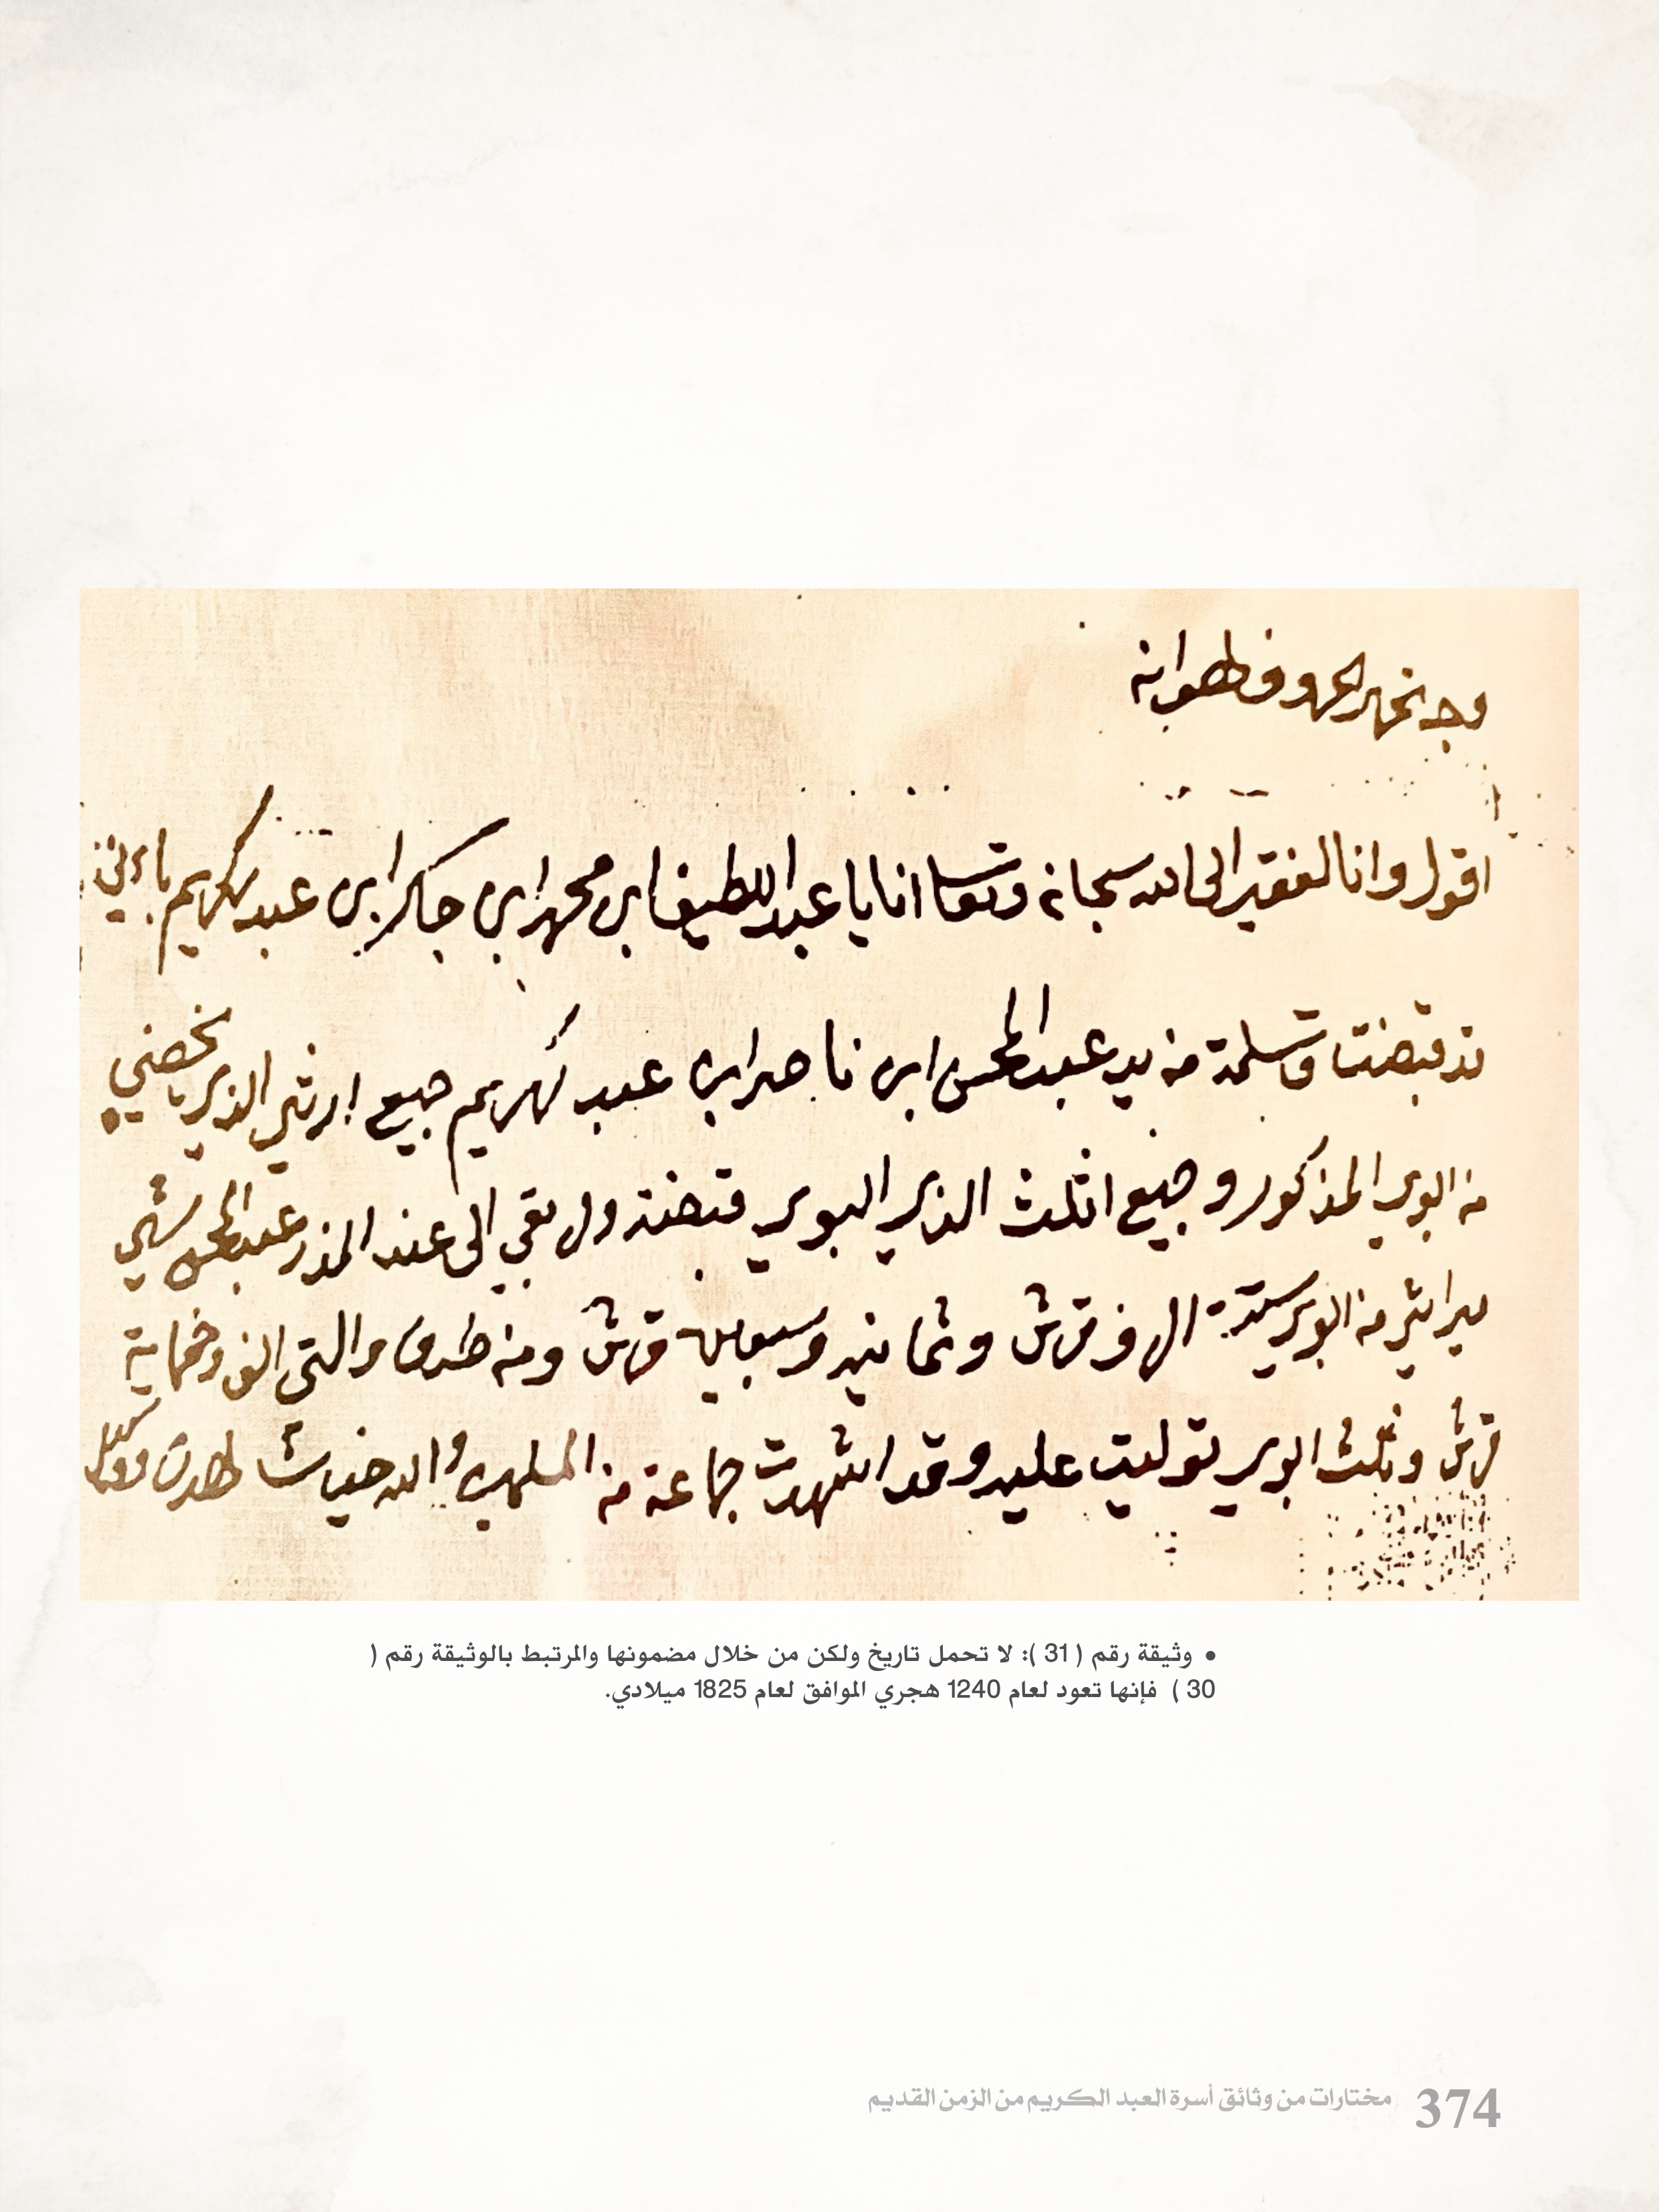 وجه تحرير الحروف هوانه
اقول وانا الفقير الى الله سبحانه وتعالا انا يا عبد اللطيف ابن محمد ابن جاكر ابن عبد لكريم باءنني
قد قبضت وتسلمة من يد عبد المحسن ابن ناصر ابن عبد لكريم جميع ارثي الذي يخصني
من ابوي المذكور وجميع اثلث الذي البوي قبضته ول بقي الى عند المذر عبد المحسن شي
ميراثي من ابوي ستة الف قرش وثمانين وسبعين قرش ومن طرف والتي الف وخماية
قرش وثلث ابوي توليت عليه وقد اشهدت جماعة من المسلمين والله خير شاهدن ووكيل
• وثيقة رقم ( 31 ): لا تحمل تاريخ ولكن من خلال مضمونها والمرتبط بالوثيقة رقم (
30 ) فإنها تعود لعام 1240 هجري الموافق لعام 1825 ميلادي.
374 مختارات من وثائق أسرة العبد الكريم من الزمن القديم